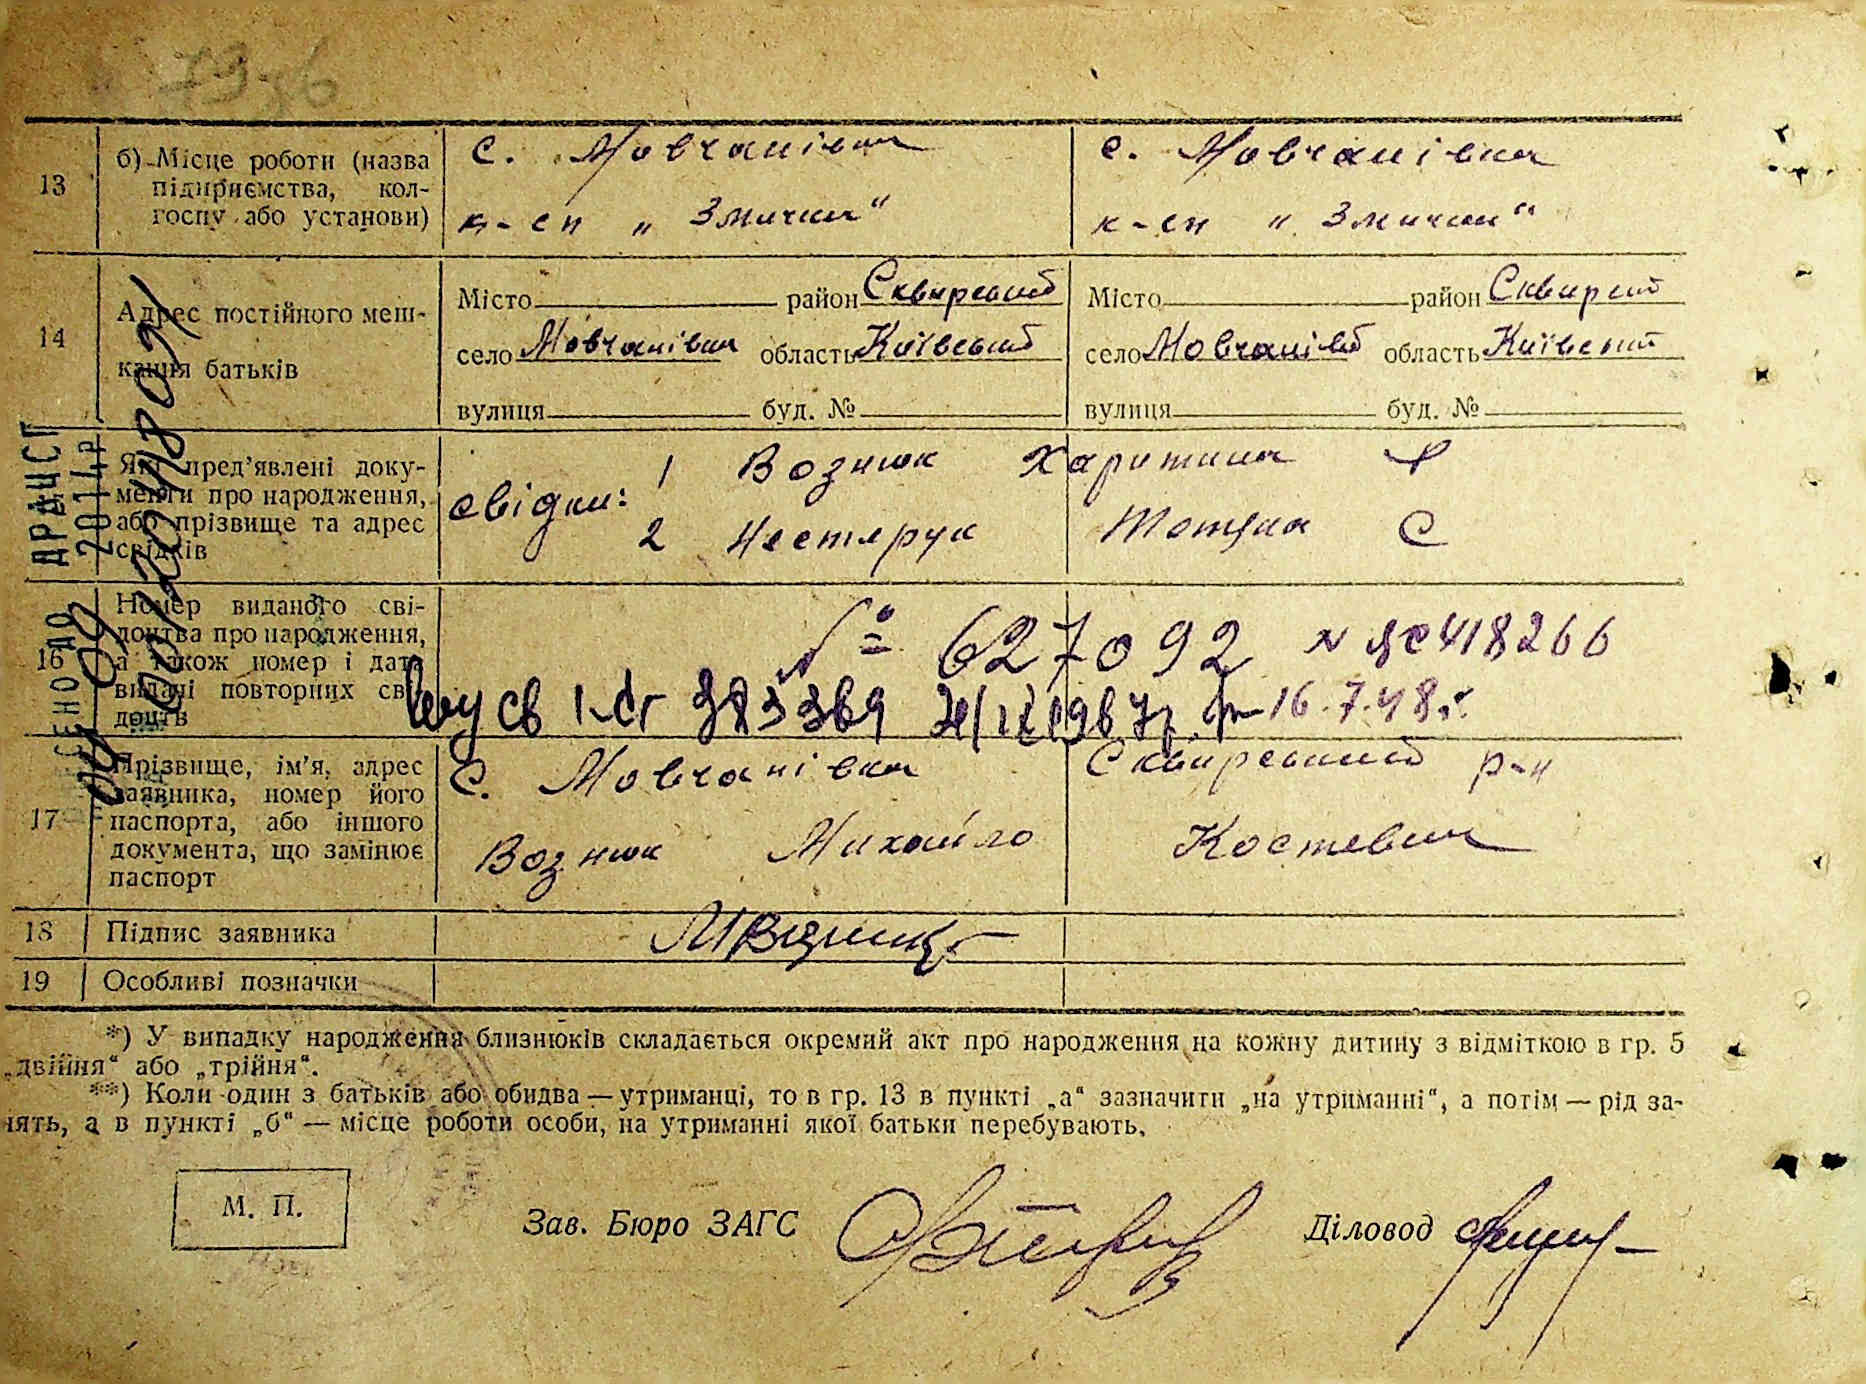 13
б) Місце роботи (назва підприємства, колгоспу або установи)
с. Мовчанівка
к-сп „Змичка“
с. Мовчанівка
к-сп „Змичка“
14
Адрес постійного мешкання батьків
Місто район Сквирський
село Мовчанівка область Київський
вулиця буд. №
Місто район Сквирсий
село Мовчанівс область Київський
вулиця буд. №
Які пред’явлені документи про народження, або прізвище та адрес свідків
свідки: 1 Вознюк Харитина
2 Нестерук Тотяна С
16
Номер виданого свідоцтва про народження, а також номер і дата видачі повторних свідоцтв
№ 627092 418266
16.7.48
17
Прізвище, ім’я, адрес заявника, номер його паспорта, або іншого документа, що замінює паспорт
с. Мовчанівка Сквирський р-н
Вознюк Михайло Костевич
18
Підпис заявника
19
Особливі позначки
*) У випадку народження близнюків складається окремий акт про народження на кожну дитину з відміткою в гр. 5
„двійня“ або „трійня“.
**) Коли один з батьків або обидва — утриманці, то в гр. 13 в пункті „а“ зазначити „на утриманні“, а потім — рід за-
нять, а в пункті „б“ — місце роботи особи, на утриманні якої батьки перебувають.
М. П.
Зав. Бюро ЗАГС
Діловод
ДРАЦСГ
2014р